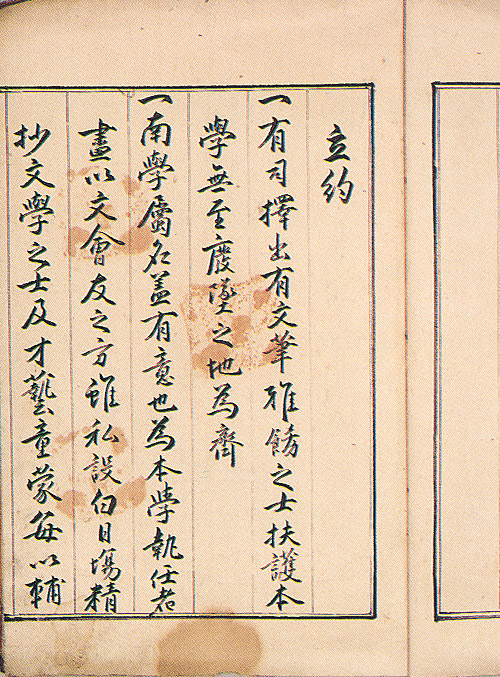 立約
一有司擇出有文筆雅飭之士扶護本
學無至廢墜之地為齊
一南學屬名蓋有意也為本學執任者
盡以文會友之方雖私設白日場精
抄文學之士及才藝童蒙每以輔